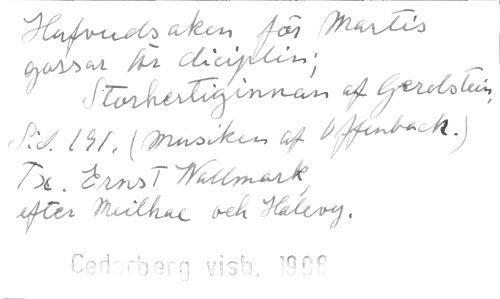 Hufvudsaken för Martis
gossar är diciplin;
Storhertiginnan af Gerolstein,
Sid. 191. (Musiken af Offenback.)
Tx. Ernst Wallmark,
efter Meilhac och Halevy.
Cederberg visb, 1908